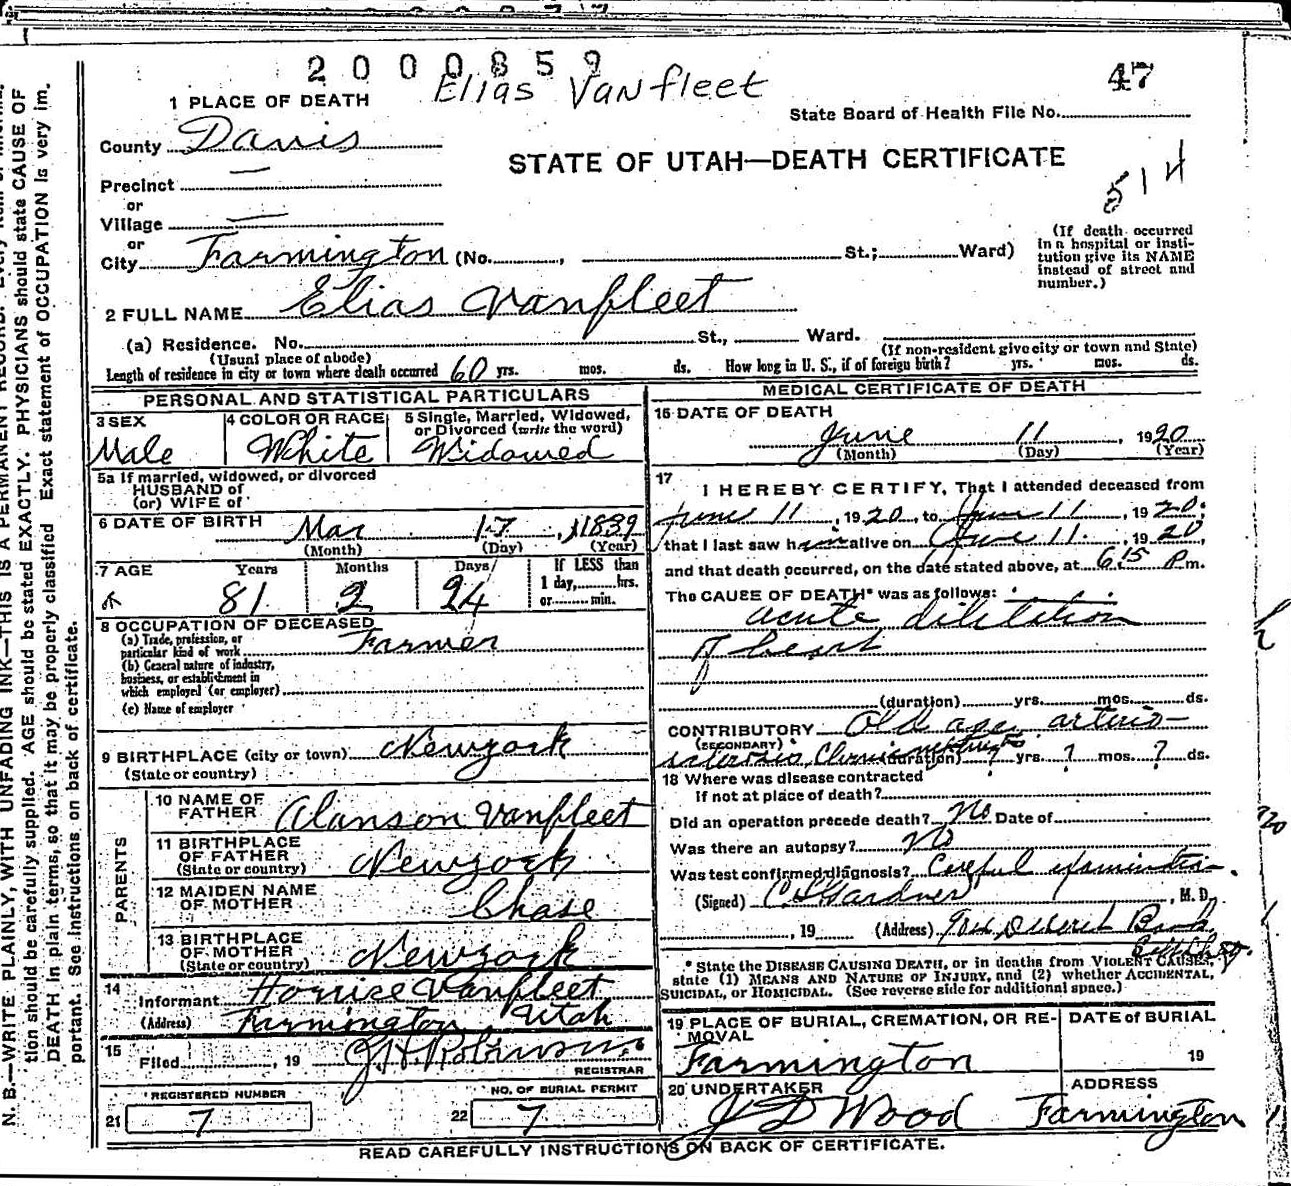 2000859
Elias Vanfleet
47
1 PLACE OF DEATH
State Board of Health File No.
County Davis
STATE OF UTAH—DEATH CERTIFICATE
514
Precinct —
or
Village —
or
City Farmington (No. , St.; Ward)
(If death occurred
in a hospital or insti-
tution give its NAME
instead of street and
number.)
2 FULL NAME Elias Vanfleet
(a) Residence. No. St., Ward.
(Usual place of abode) (If non-resident give city or town and State)
Length of residence in city or town where death occurred 60 yrs. mos. ds. How long in U. S., if of foreign birth? yrs. mos. ds.
PERSONAL AND STATISTICAL PARTICULARS
3 SEX
Male
4 COLOR OR RACE
White
5 Single, Married, Widowed,
or Divorced (write the word)
Widowed
5a If married, widowed, or divorced
HUSBAND of
(or) WIFE of
6 DATE OF BIRTH Mar 17, 1839
(Month) (Day) (Year)
7 AGE Years Months Days If LESS than
1 day, hrs.
or min.
81 2 24
8 OCCUPATION OF DECEASED
(a) Trade, profession, or
particular kind of work Farmer
(b) General nature of industry,
business, or establishment in
which employed (or employer)
(c) Name of employer
9 BIRTHPLACE (city or town) Newyork
(State or country)
PARENTS
10 NAME OF
FATHER Alanson Vanfleet
11 BIRTHPLACE
OF FATHER
(State or country) Newyork
12 MAIDEN NAME
OF MOTHER Chase
13 BIRTHPLACE
OF MOTHER
(State or country) Newyork
14
Informant Vanfleet
(Address) Farmington, Utah
15
Filed , 19 J H Robinson
REGISTRAR
REGISTERED NUMBER
21 7
NO. OF BURIAL PERMIT
22 7
MEDICAL CERTIFICATE OF DEATH
16 DATE OF DEATH
June 11, 1920
(Month) (Day) (Year)
17
I HEREBY CERTIFY, That I attended deceased from
June 11, 1920, to June 11, 1920,
that I last saw him alive on June 11, 1920,
and that death occurred, on the date stated above, at 6.15 P m.
The CAUSE OF DEATH* was as follows:
acute dilitation
of heart
(duration) yrs. mos. ds.
CONTRIBUTORY Old age, arterio-
(SECONDARY)
sclerosis, Chronic nephritis (duration) ? yrs. ? mos. ? ds.
18 Where was disease contracted
if not at place of death?
Did an operation precede death? No Date of
Was there an autopsy? No
Was test confirmed diagnosis? Careful examination.
(Signed) Gardner, M. D.
, 19 (Address) Deseret Bank
* State the DISEASE CAUSING DEATH, or in deaths from VIOLENT CAUSES,
state (1) MEANS AND NATURE OF INJURY, and (2) whether ACCIDENTAL,
SUICIDAL, or HOMICIDAL. (See reverse side for additional space.)
19 PLACE OF BURIAL, CREMATION, OR RE-
MOVAL
Farmington
DATE of BURIAL
19
20 UNDERTAKER
J D Wood
ADDRESS
Farmington
READ CAREFULLY INSTRUCTIONS ON BACK OF CERTIFICATE.
N. B.—WRITE PLAINLY, WITH UNFADING INK—THIS IS A PERMANENT RECORD. Every
tion should be carefully supplied. AGE should be stated EXACTLY. PHYSICIANS should state CAUSE OF
DEATH in plain terms, so that it may be properly classified. Exact statement of OCCUPATION is very im-
portant. See instructions on back of certificate.